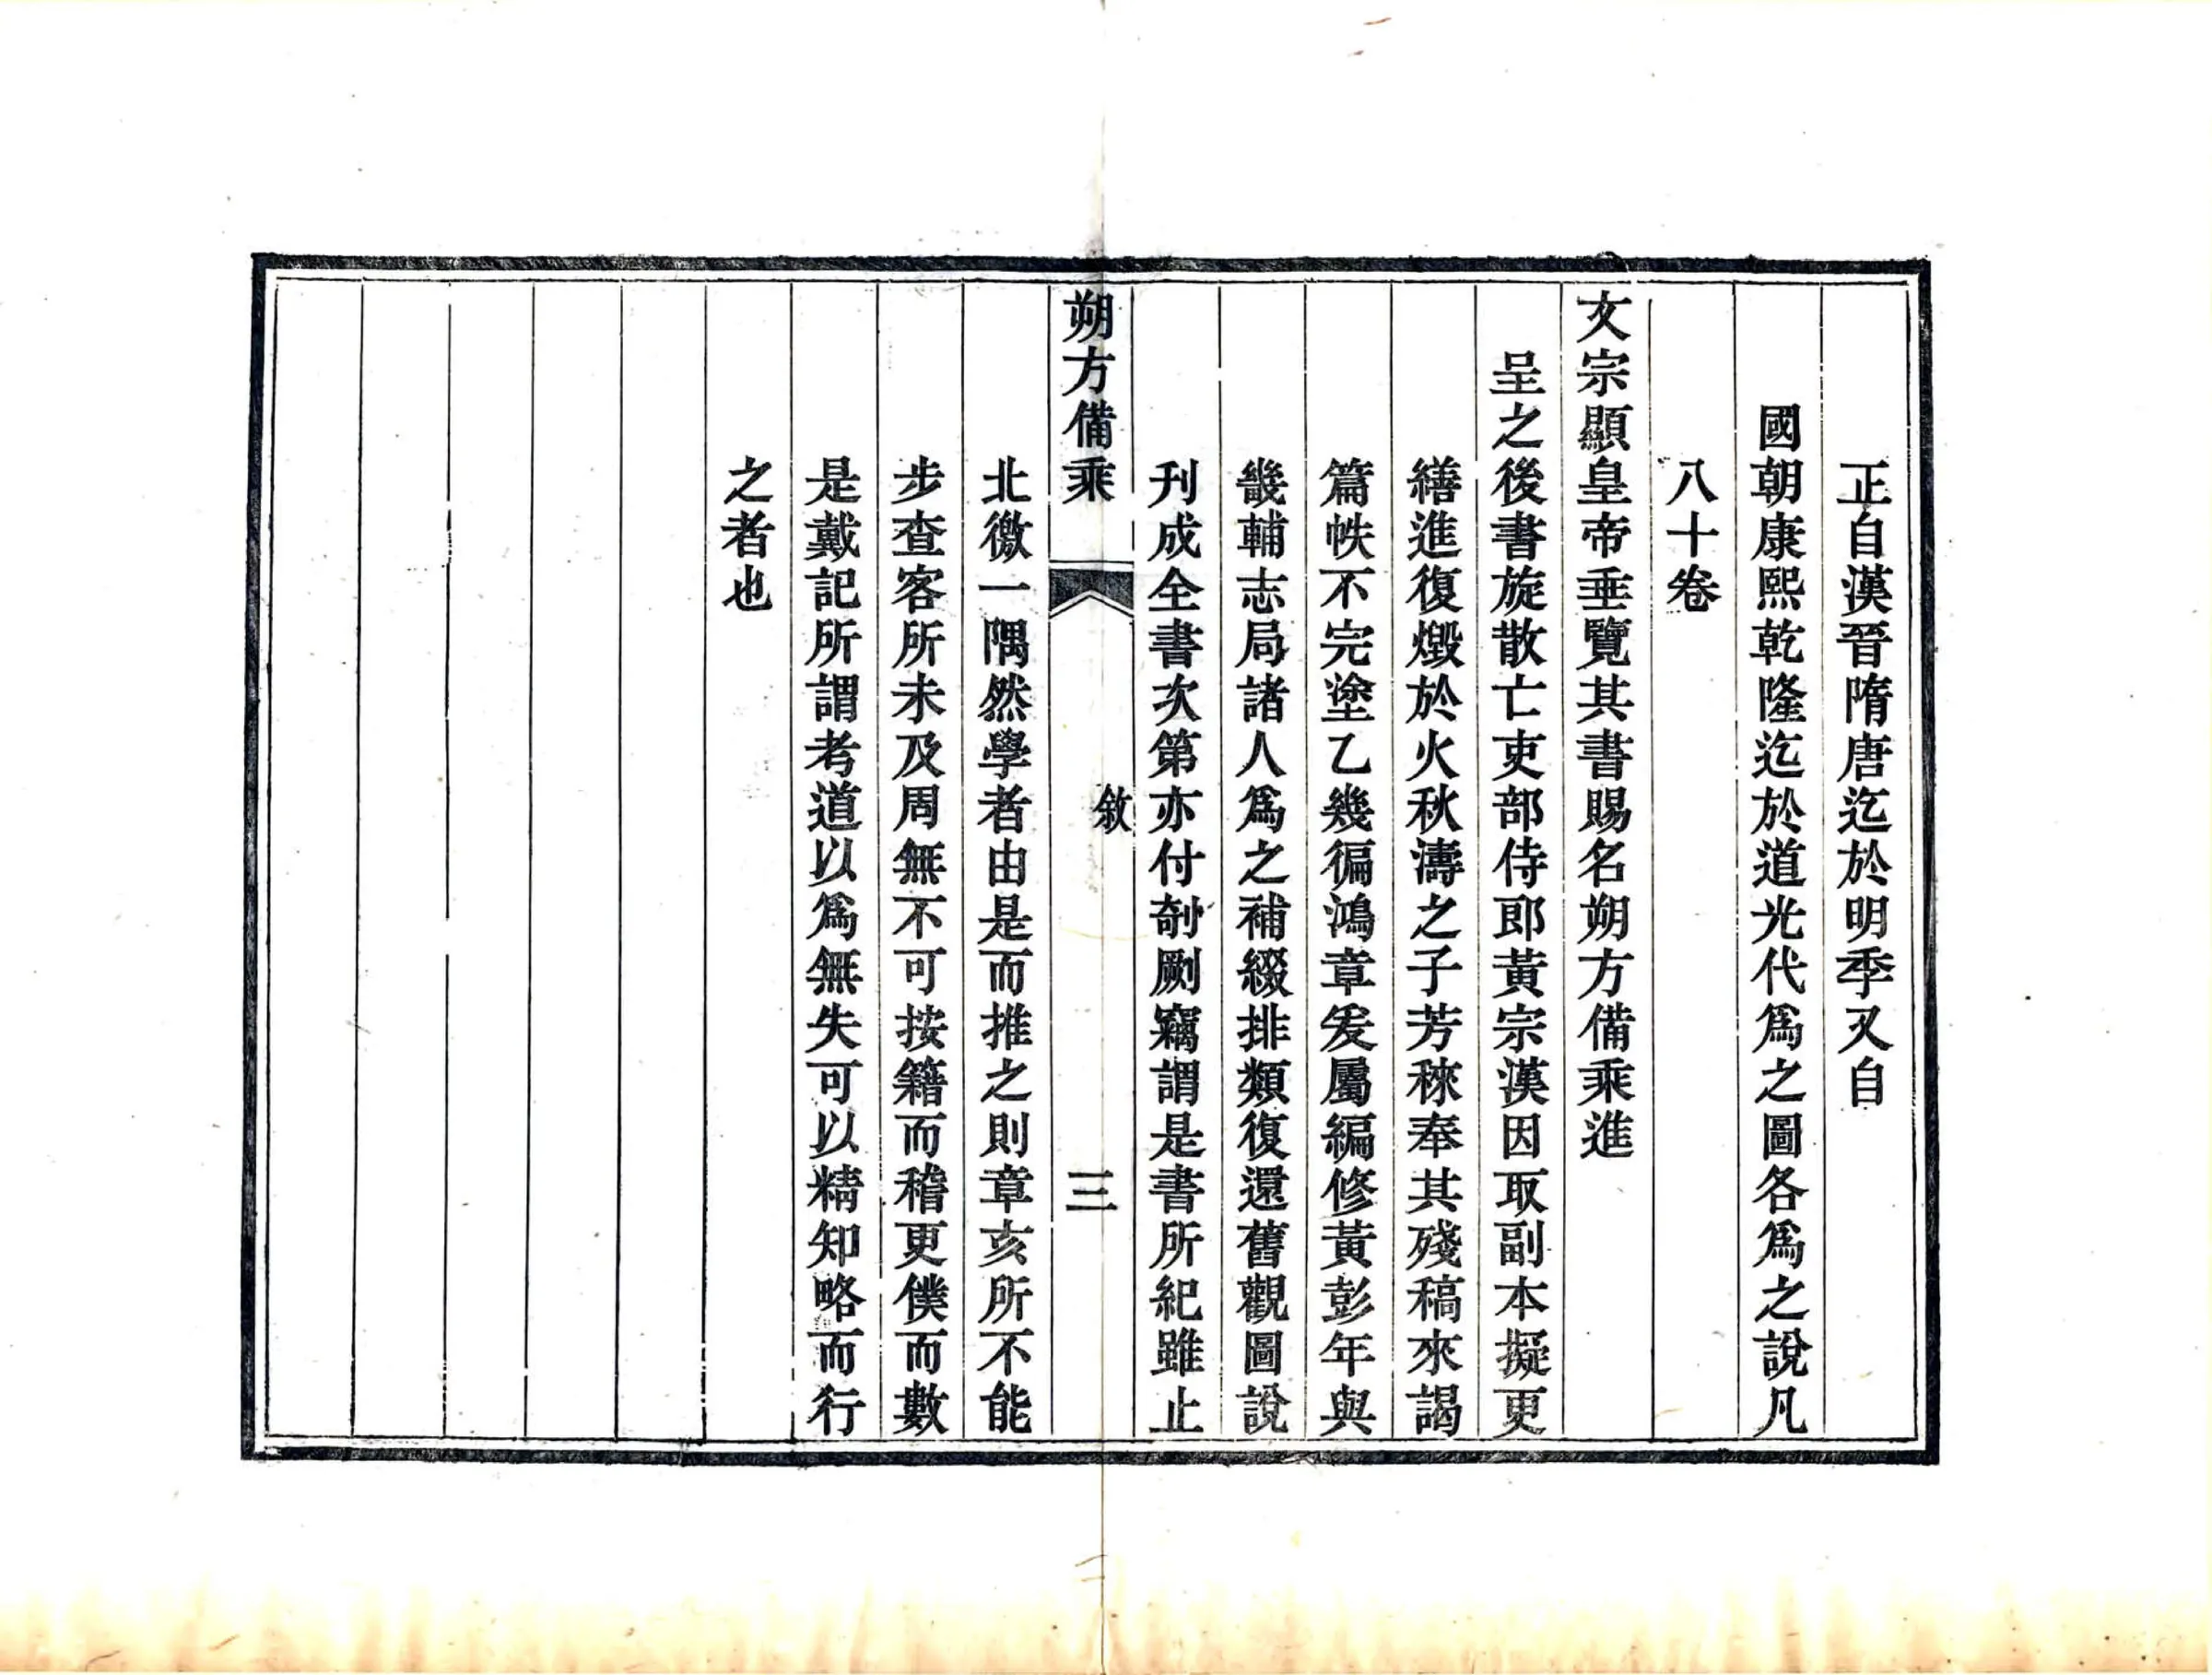 正自漢晉隋唐迄於明季又自
國朝康熙乾隆迄於道光代爲之圖各爲之說凡
八十卷
文宗顯皇帝垂覽其書賜名朔方備乘進
呈之後書旋散亡吏部侍郎黃宗漢因取副本擬更
繕進復燬於火秋濤之子芳秾奉其殘稿來謁
篇帙不完塗乙幾徧鴻章爰屬編修黃彭年與
畿輔志局諸人爲之補綴排類復還舊觀圖說
刊成全書次第亦付剞劂竊謂是書所紀雖止
朔方備乘
敘
三
北徼一隅然學者由是而推之則章亥所不能
步查客所未及周無不可按籍而稽更僕而數
是戴記所謂考道以爲無失可以精知略而行
之者也